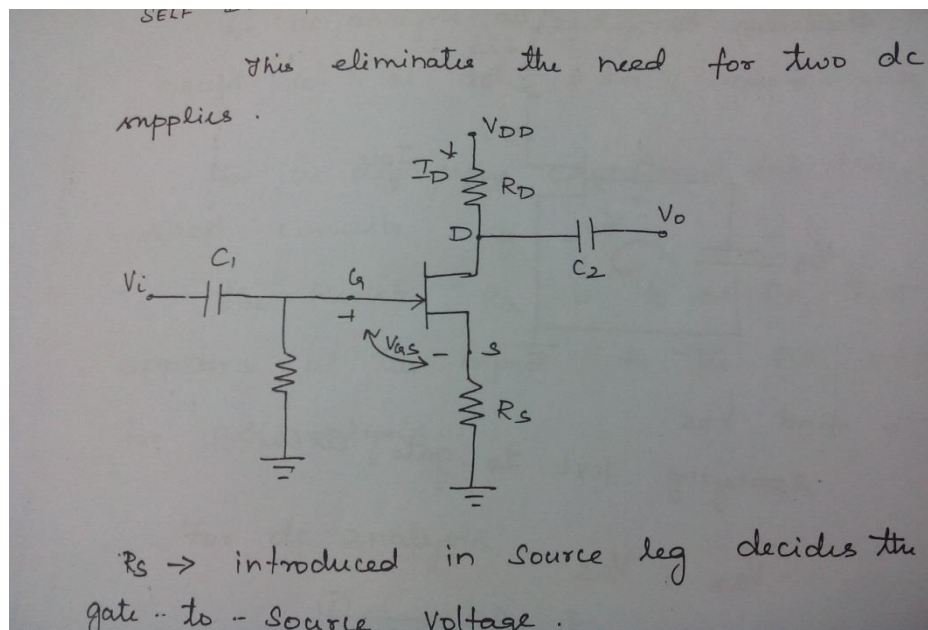 SELF
This eliminates the need for two dc
supplies .
VDD
ID
RD
D
Vo
C1
C2
Vi
G
+
VGS
-
S
RS
RS → introduced in source leg decides the
gate - to - source voltage .